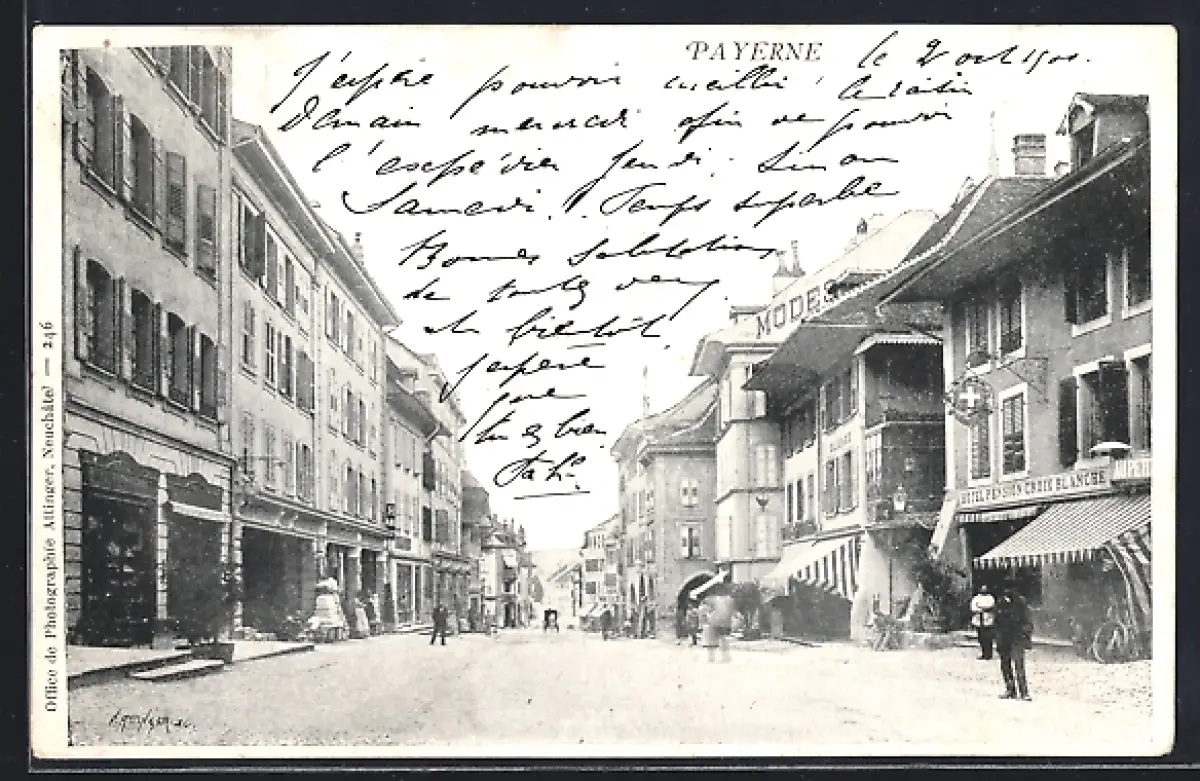 PAYERNE
le 2 oct 1900.
J'espère pouvoir cueillir le raisin
Demain mercredi afin de pouvoir
l'expédier jeudi. Sinon
Samedi. Temps superbe
Bonnes salutations
de
et à bientôt.
J'espère
que
bien
MODES
HOTEL PENSION CROIX BLANCHE
Office de Photographie Attinger, Neuchâtel — 246